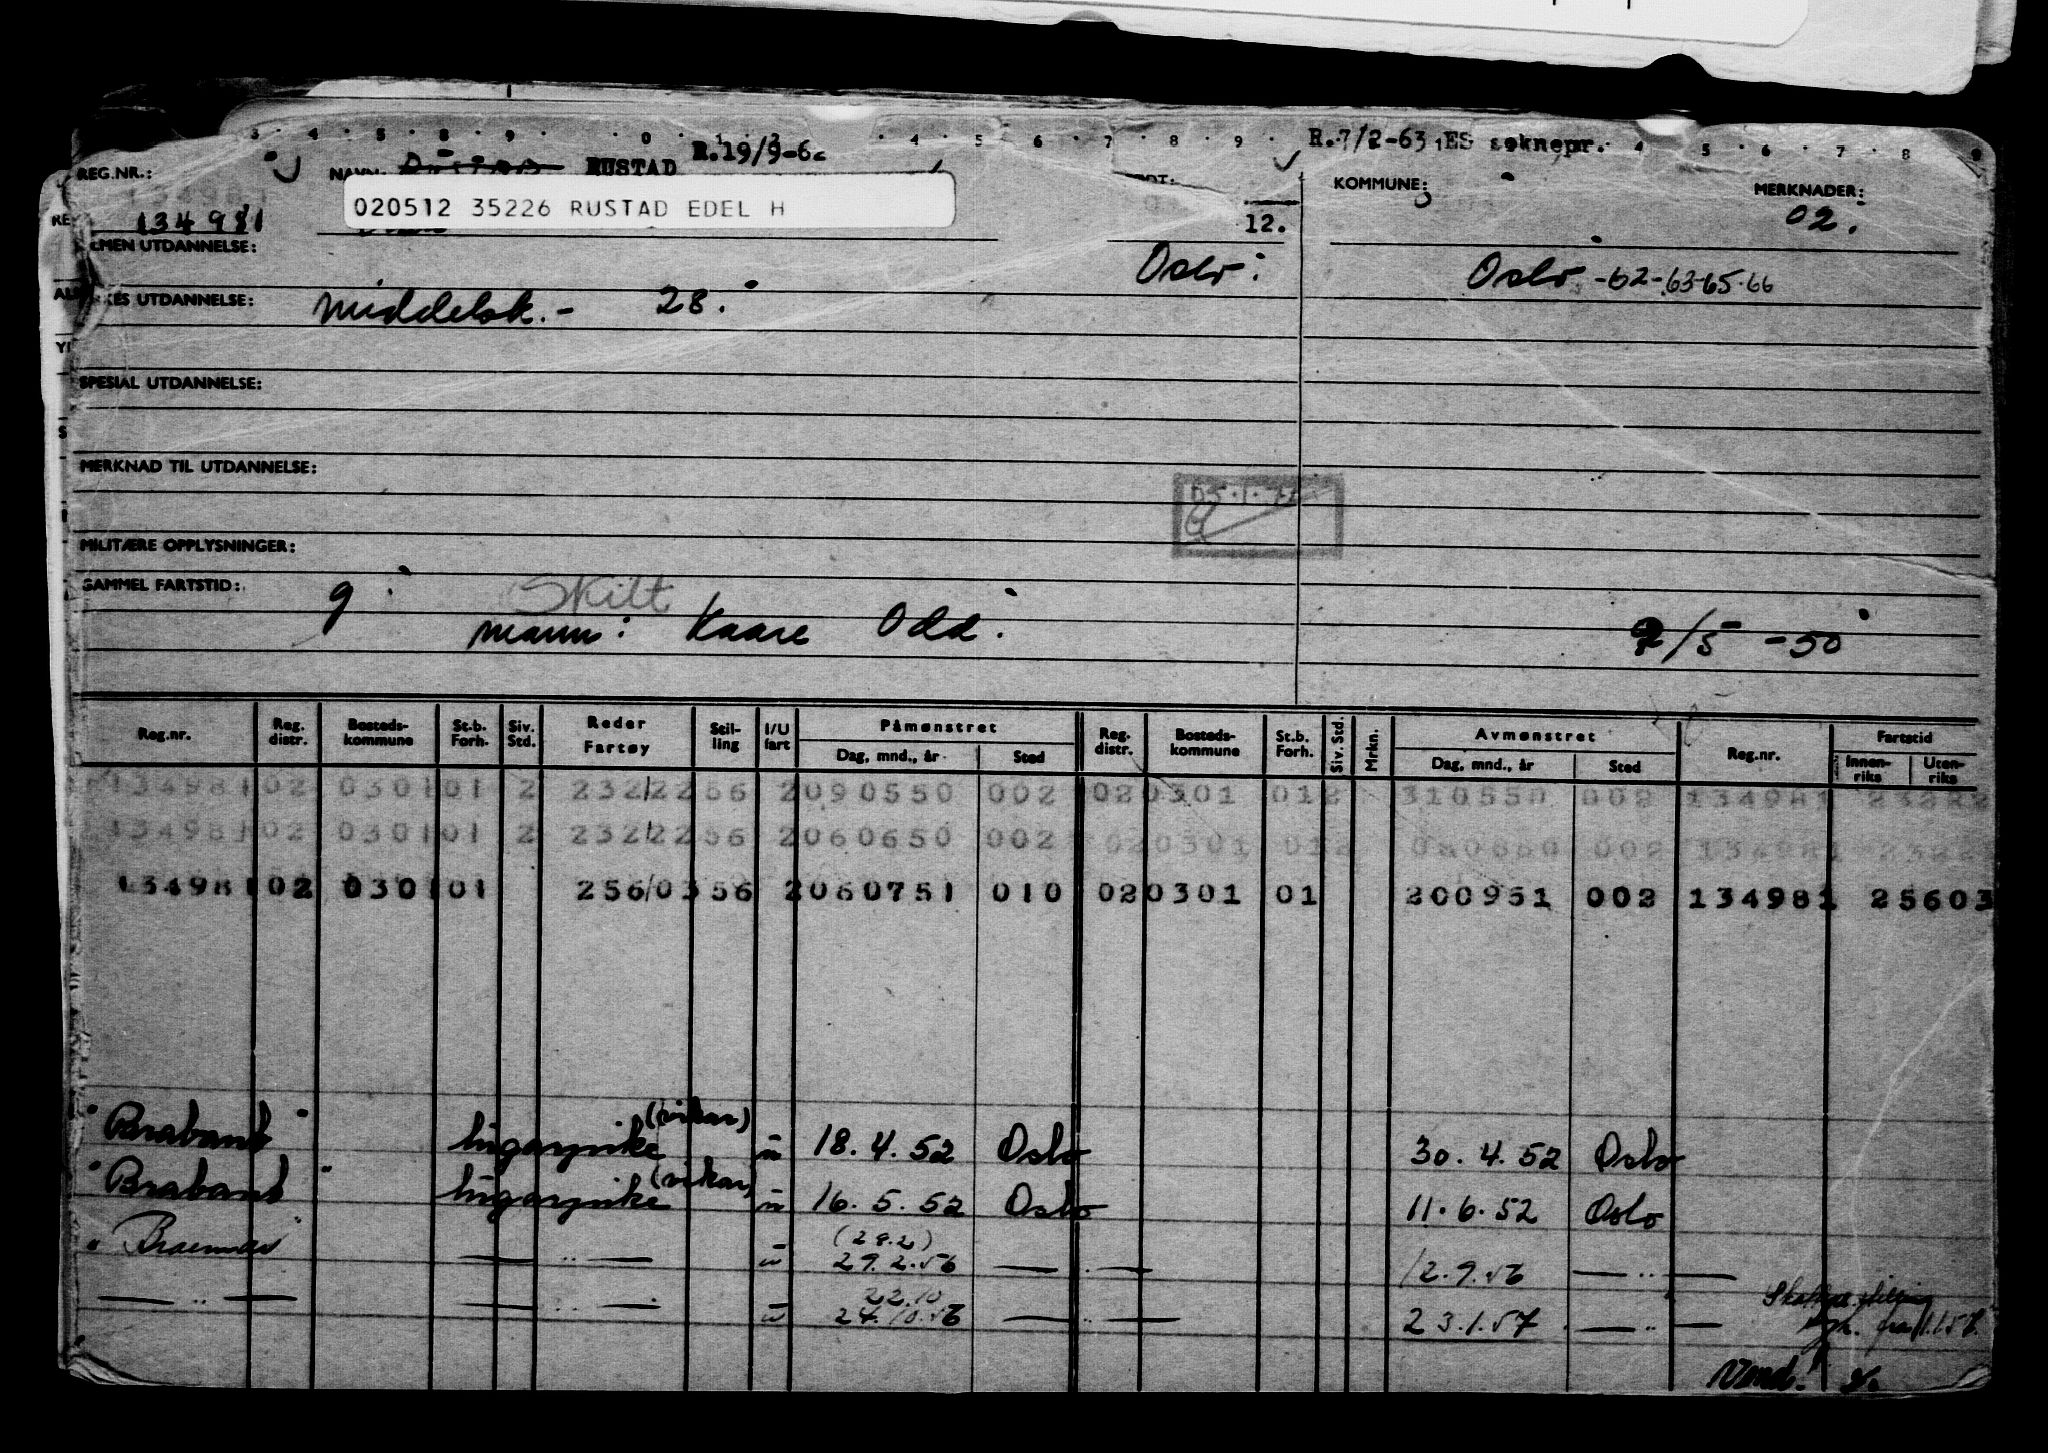 R.19/9-62 R.7/2-63 ES søknepr.
REG.NR.: RUSTAD KOMMUNE: MERKNADER:
134981 020512 35226 RUSTAD EDEL H 12. 02.
UTDANNELSE: Oslo Oslo -62-63-65-66
UTDANNELSE: Middelsk. - 28.
SPESIAL UTDANNELSE:
MERKNAD TIL UTDANNELSE:
MILITÆRE OPPLYSNINGER:
GAMMEL FARTSTID: g Skilt
mann: Kaare Odd. 9/5 -50
Reg.nr. Reg. distr. Bosteds-kommune St.b. Forh. Siv. Std. Reder Fartøy Stil-ling I/U fart Påmønstret Dag, mnd., år Sted Reg. distr. Bosteds-kommune St.b. Forh. Siv. Std. Mrkn. Avmønstret Dag, mnd., år Sted Reg.nr. Fartstid Innen-riks Uten-riks
134981 02 0301 01 2 232/22 56 2 090550 002 02 0301 01 2 310550 002 134981 23222
134981 02 0301 01 2 232/22 56 2 060650 002 02 0301 01 2 002 134981
134981 02 0301 01 256/03 56 2 060751 010 02 0301 01 200951 002 134981 25603
"Brabant" lugarpike (vikar) u 18.4.52 Oslo 30.4.52 Oslo
"Brabant" lugarpike (vikar) u 16.5.52 Oslo 11.6.52 Oslo
" Braemar" — " — u (28.2) 29.2.56 — " — 12.9.56 — " —
— " — — " — u 22.10 24.10.56 — " — 23.1.57 — " — fra 1.1.57.
Vend!